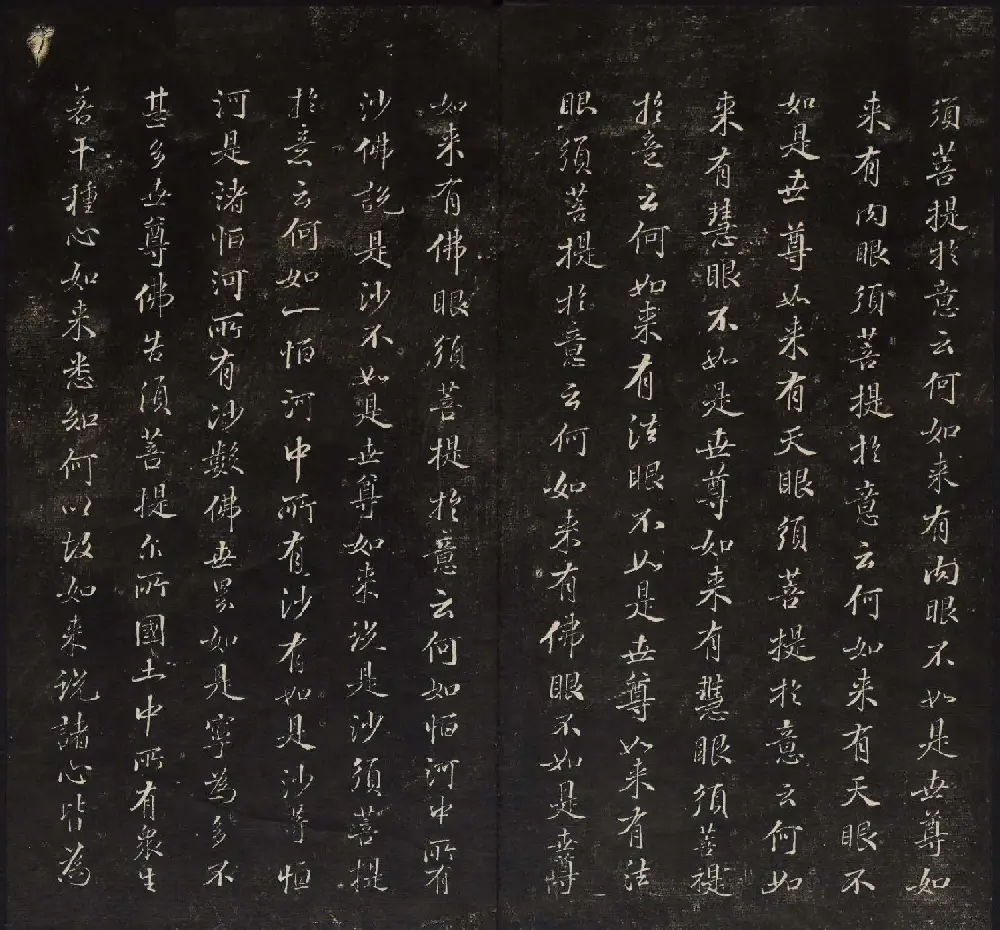 須菩提扵意云何如来有肉眼不如是世尊如
来有肉眼須菩提扵意云何如来有天眼不
如是世尊如来有天眼須菩提扵意云何如
来有慧眼不如是世尊如来有慧眼須菩提
扵意云何如来有法眼不如是世尊如来有法
眼須菩提扵意云何如来有佛眼不如是世尊
如来有佛眼須菩提扵意云何如恒河中所有
沙佛說是沙不如是世尊如来说是沙須菩提
扵意云何如一恒河中所有沙有如是沙等恒
河是諸恒河所有沙數佛世界如是寧為多不
甚多世尊佛告須菩提尒所國土中所有衆生
若干種心如来悉知何以故如来说諸心皆為